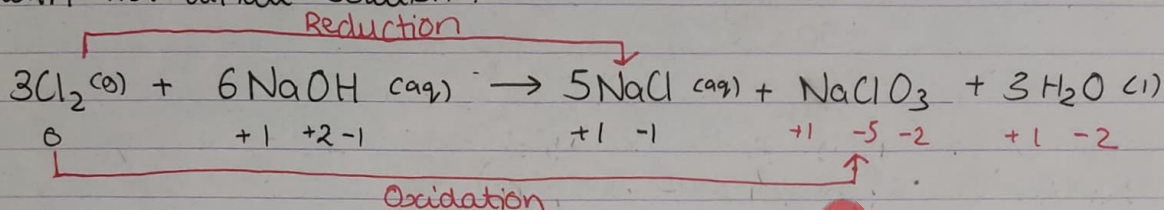 Reduction
3Cl₂(g) + 6NaOH (aq) → 5NaCl (aq) + NaClO₃ + 3H₂O (l)
0 +1 +2 -1 +1 -1 +1 -5 -2 +1 -2
Oxidation